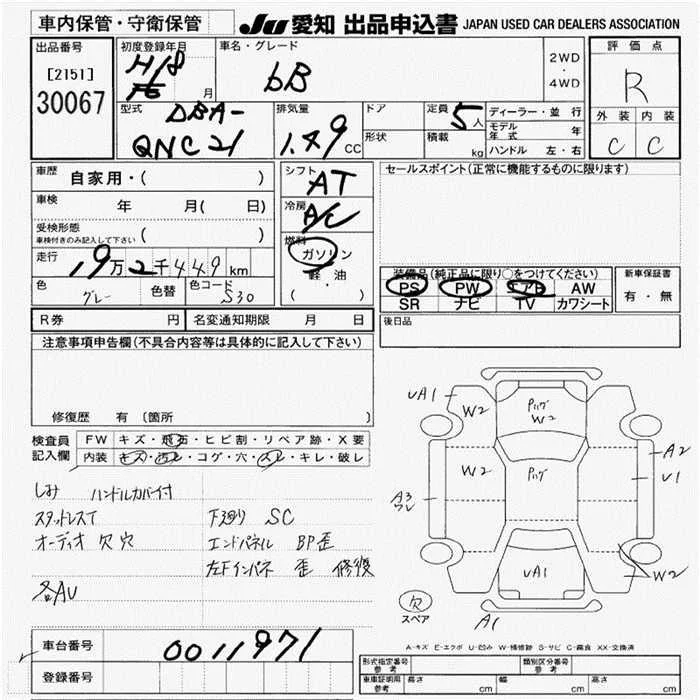 車内保管・守衛保管
JU 愛知 出品申込書 JAPAN USED CAR DEALERS ASSOCIATION
出品番号
[2151]
30067
初度登録年月
H18
月
車名・グレード
bB
2WD
・
4WD
評価点
R
外装 内装
C C
型式
DBA-
QNC21
排気量
1.49 CC
ドア
形状
定員
5人
積載
kg
ディーラー・並行
モデル年式 年
ハンドル 左・右
車歴
自家用・( )
車検
年 月( 日)
受検形態
車検付きのみ記入して下さい ( )
走行
19万2千449km
色
グレー
色替
色コード
S30
シフト
AT
冷房
A/C
燃料
ガソリン
・
軽油
( )
セールスポイント(正常に機能するものに限ります)
装備品(純正品に限り○をつけてください)
PS PW エアB AW
SR ナビ TV カワシート
新車保証書
有・無
R券 円
名変通知期限 月 日
後日品
注意事項申告欄(不具合内容等は具体的に記入して下さい)
修復歴 有 〔箇所 〕
検査員
記入欄
FW キズ・飛石・ヒビ割・リペア跡・X要
内装 キズ・汚レ・コゲ・穴・スレ・キレ・破レ
しみ ハンドルカバー付
スタッドレスT
オーディオ欠穴
各AU
下廻り SC
エンドパネル BP歪
左Fインパネ 歪 修復
UA1
W2
W2
W2
A2
U1
A3
UA1
W2
A1
欠
スペア
A-キズ E-エクボ U-凹み W-補修跡 S-サビ C-腐食 XX-交換済
車台番号
0011971
登録番号
形式指定番号
参考
類別区分番号
参考
車庫証明用
参考
長さ cm
幅 cm
高さ cm